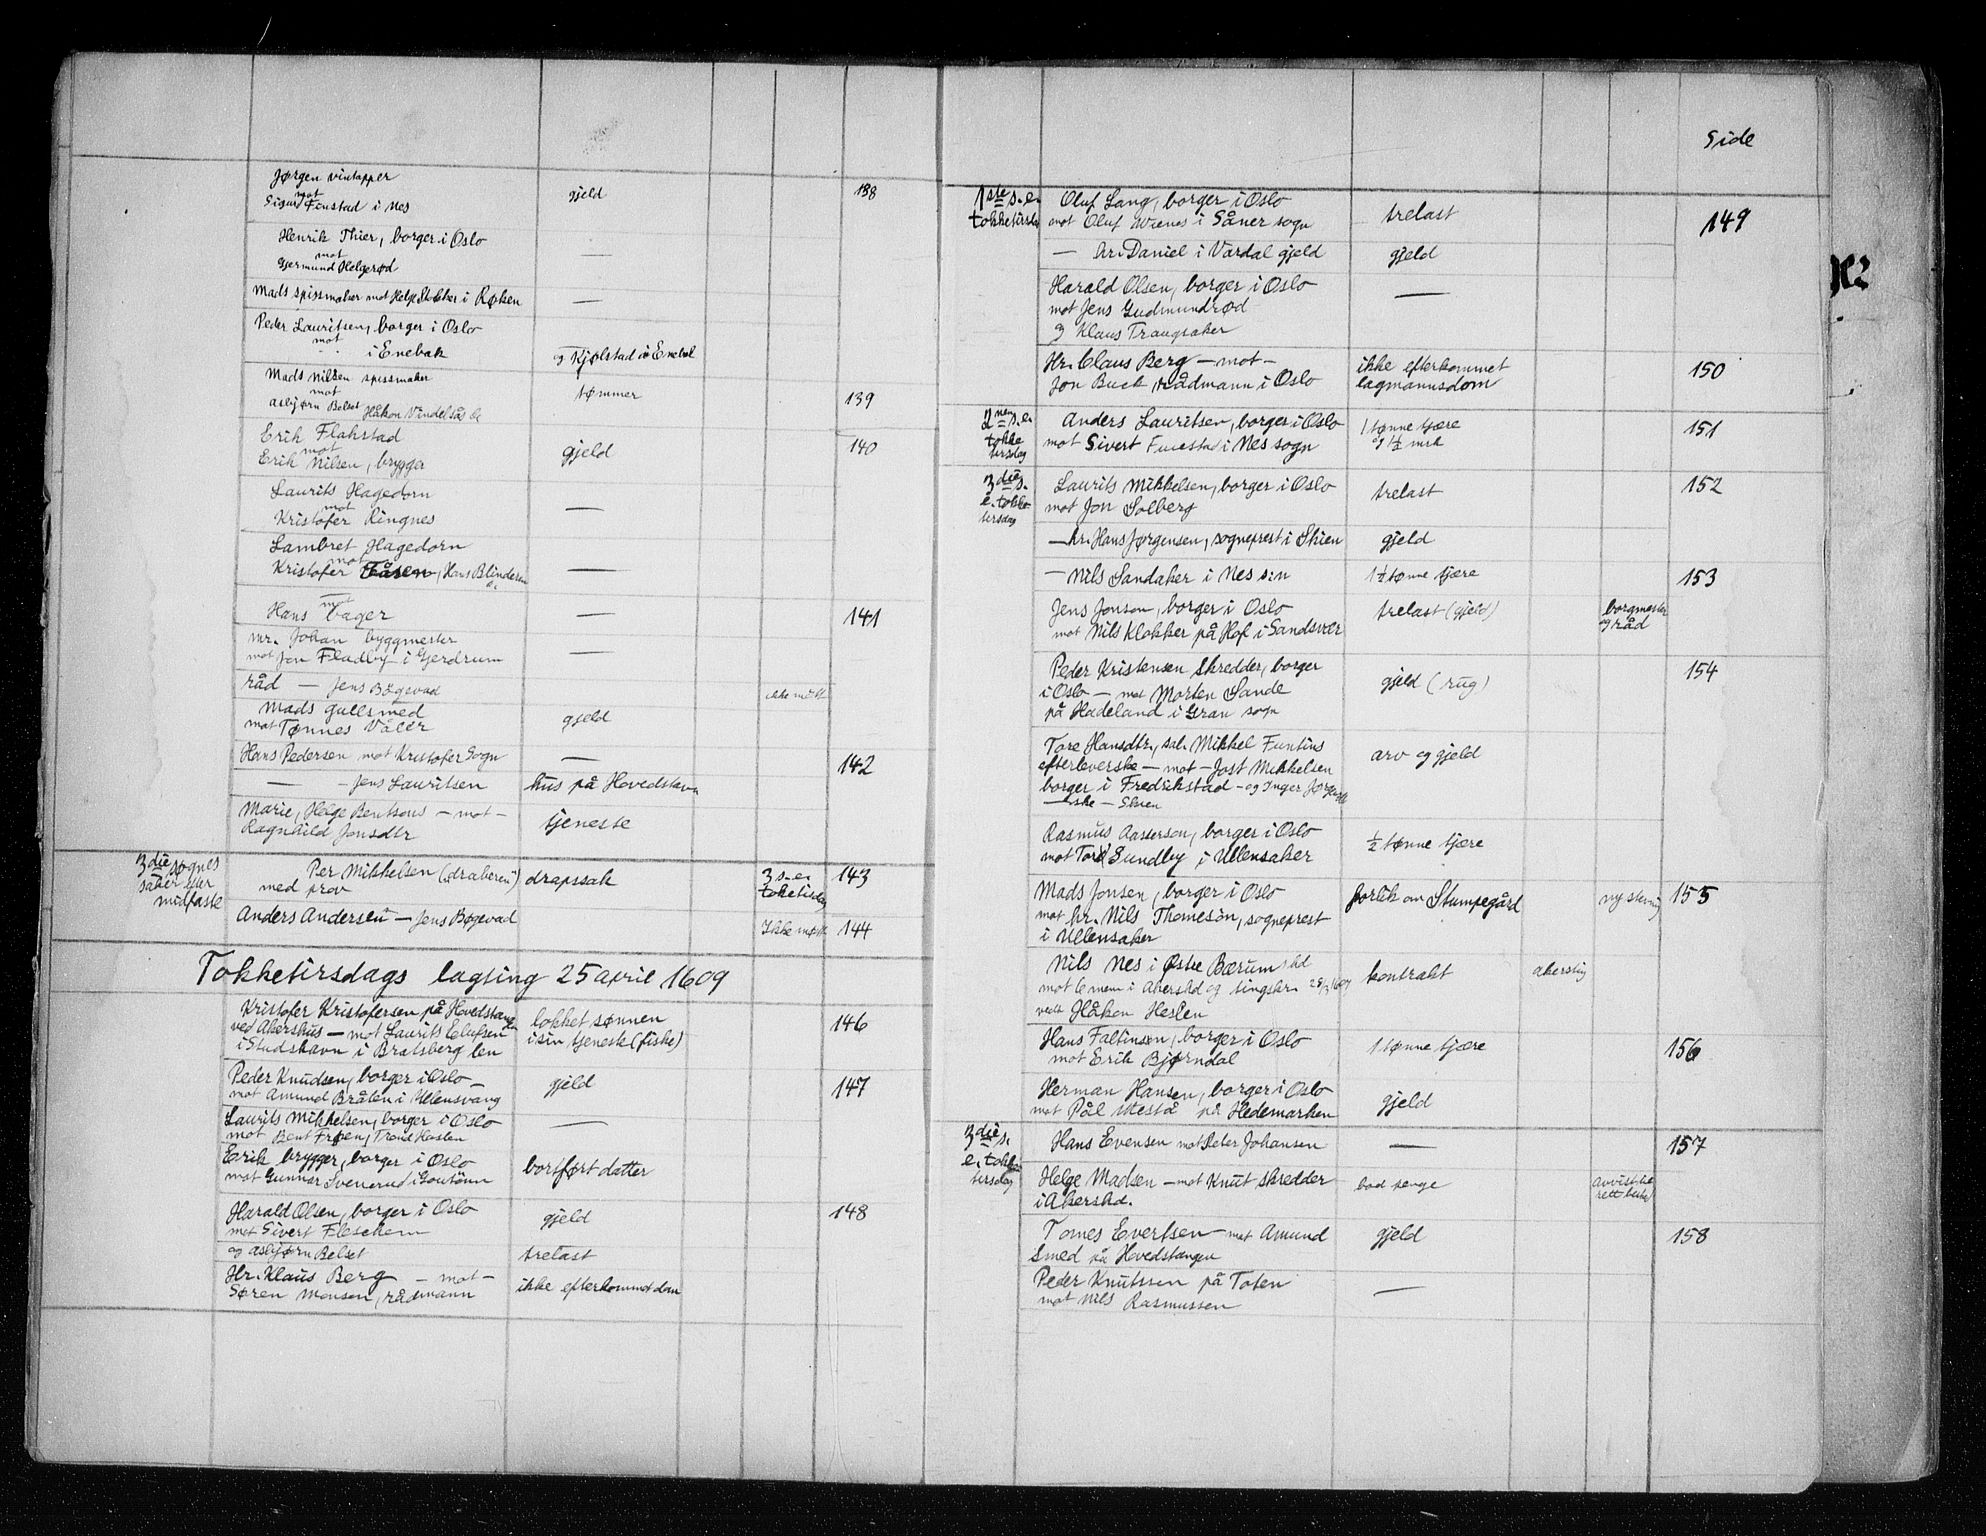 Jørgen vintapper
mot
Sigurd Finstad i Nes
gjeld
138
Henrik Thier, borger i Oslo
mot
Gjermund Helgerød
—
Mads spissmaker mot Helje Stokker i Røken
—
Peder Lauritsen, borger i Oslo
mot
i Enebak
og Kjølstad i Enebak
Mads Nilsen spissmaker
mot
Asbjørn Belset Håkon Vindelsås
tømmer
139
Erik Flahstad
mot
Erik Nilsen, brygger
gjeld
140
Laurits Hagedorn
mot
Kristofer Ringnes
—
Lambret Hagedorn
mot
Kristofer Tåsen, Hans Blinderen
—
mot
Hans bager
—
141
mr. Johan byggmester
mot Jon Fladby i Gjerdrum
—
råd — Jens Bøgevad
ikke møtt
Mads gullsmed
mot Tønnes Våler
gjeld
Hans Pedersen mot Kristofer Sogn
—
142
— — Jens Lauritsen
hus på Hovedstavn
Marie, Helge Bentsons — mot —
Ragnhild Jonsdtr
tjeneste
3die sognes
saker efter
midfaste
Per Mikkelsen („draberen")
med prov
drapssak
3 s. e.
toketirsdag
143
Anders Andersen — Jens Bøgevad
Ikke møtt
144
Tokketirsdags lagting 25 april 1609
Kristofer Kristofersen på Hovedstangen
ved Akershus — mot Laurits Elufsen
i Studshavn i Bratsberg len
lokket sønnen
i sin tjeneste (fiske)
146
Peder Knudsen, borger i Oslo —
mot Amund Bråten i Ullensvang
gjeld
147
Laurits Mikkelsen, borger i Oslo
mot Bent Frøen, Trond Haslen
—
Erik brygger, borger i Oslo
mot Gunnar Svenerud i
bortført datter
Harald Olsen, borger i Oslo
mot Sivert Fleschem
gjeld
148
og Asbjørn Belset
trelast
Hr. Klaus Berg — mot —
Søren Monsen, rådmann
ikke efterkommet dom
Side
1ste s. e.
tokketirsdag
Oluf Lang, borger i Oslo
mot Oluf Wienes i Såner sogn
trelast
149
— hr. Daniel i Vardal gjeld
gjeld
Harald Olsen, borger i Oslo
mot Jens Gudmundrød
og Klaus Traugsaker
—
Hr. Claus Berg — mot —
Jon Buck, rådmann i Oslo
ikke efterkommet
lagmannsdom
150
2nen s. e.
tokke
tirsdag
Anders Lauritsen, borger i Oslo
mot Sivert Finestad i Nes sogn
1 tønne tjære
og 1½ mrk
151
3die s.
e. tokke
tirsdag
Laurits Mikkelsen, borger i Oslo
mot Jon Solberg
trelast
152
— hr. Hans Jørgensen, sogneprest i Skien
gjeld
— Nils Sandaker i Nes s:n
1½ tønne tjære
153
Jens Jonson, borger i Oslo
mot Nils Klokker på Hof i Sandsvær
trelast (gjeld)
borgmester
og råd
Peder Kristensen Skredder, borger
i Oslo — mot Morten Sande
på Hadeland i Gran sogn
gjeld (rug)
154
Tore Hansdtr., sal. Mikkel Funtins
efterleverske — mot — Jost Mikkelsen
borger i Fredrikstad — og Inger Jørgens
—ske — Skien
arv og gjeld
Rasmus Aassersøn, borger i Oslo
mot Tord Sundby i Ullensaker
½ tønne tjære
Mads Jonsen, borger i Oslo
mot hr. Nils Thomesøn, sogneprest
i Ullensaker
forlik om Stumpegård
ny stevning
155
Nils Nes i Østre Bærum skd
mot 6 menn i Akershd og tingskr. 25/3 1609
vedr. Håkon Heslen
kontrakt
akersting
Hans Faltinsøn, borger i Oslo
mot Erik Bjørndal
1 tønne tjære
156
Herman Hansen, borger i Oslo
mot Pål Westå på Hedemarken
gjeld
3die s.
e. tokke
tirsdag
Hans Evensen mot Peter Johansen
—
157
Helge Madsen — mot Knut skredder
i Akershd.
bad penge
avvist til
rett
Tomes Evertsen — mot Amund
Smed på Hovedstangen
gjeld
158
Peder Knutssen på Toten
mot Nils Rasmussen
—